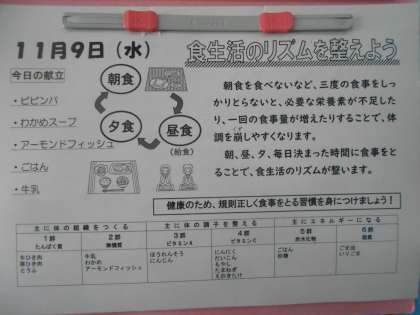 11月9日（水）
食生活のリズムを整えよう
今日の献立
・ビビンバ
・わかめスープ
・アーモンドフィッシュ
・ごはん
・牛乳
朝食
夕食
昼食
（給食）
朝食を食べないなど、三度の食事をしっ
かりとらないと、必要な栄養素が不足した
り、一回の食事量が増えたりすることで、体
調を崩しやすくなります。
朝、昼、夕、毎日決まった時間に食事をと
ることで、食生活のリズムが整います。
健康のため、規則正しく食事をとる習慣を身につけましょう！
主に体の組織をつくる
主に体の調子を整える
主にエネルギーになる
1群
たんぱく質
2群
無機質
3群
ビタミンA
4群
ビタミンC
5群
炭水化物
6群
脂質
牛ひき肉
豚ひき肉
とうふ
牛乳
わかめ
アーモンドフィッシュ
ほうれんそう
にんじん
にんにく
だいこん
もやし
たまねぎ
えのきたけ
ごはん
砂糖
ごま油
いりごま